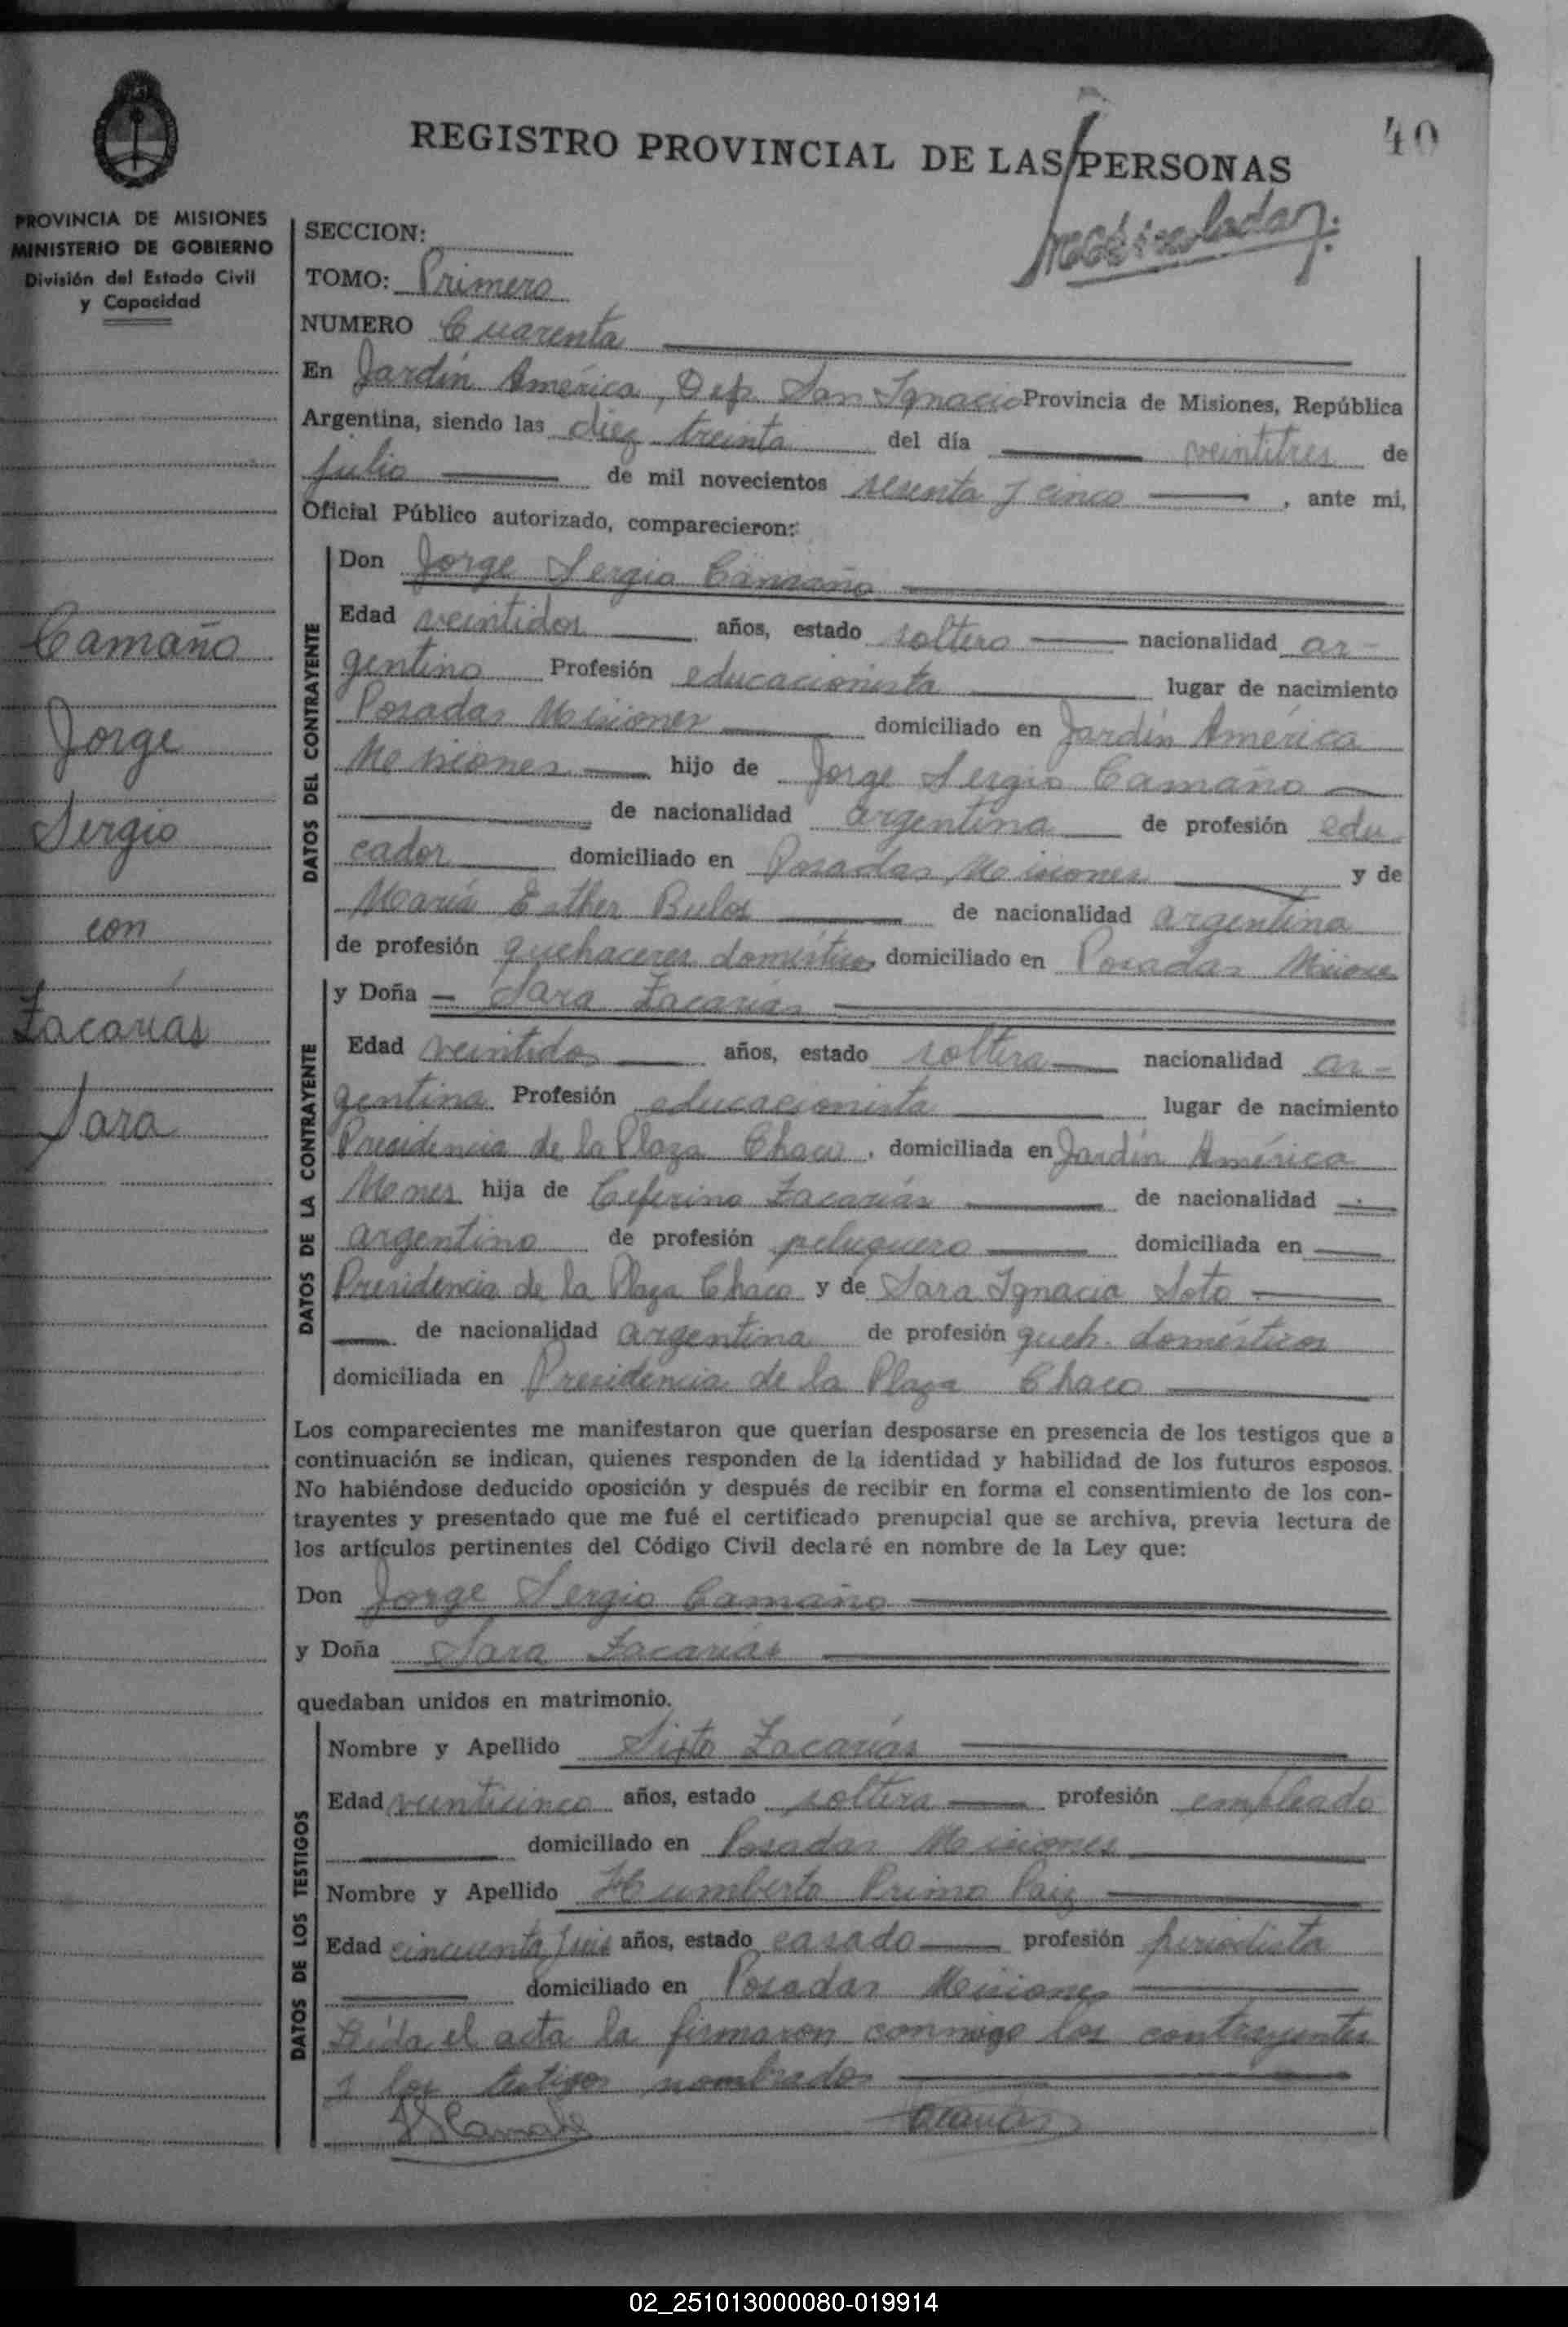 REGISTRO PROVINCIAL DE LAS PERSONAS
40
PROVINCIA DE MISIONES
MINISTERIO DE GOBIERNO
División del Estado Civil
y Capacidad
Camaño
Jorge
Sergio
con
Zacarías
Sara
SECCION:
TOMO: Primero
NUMERO Cuarenta
En Jardín América, Dep. San Ignacio Provincia de Misiones, República
Argentina, siendo las diez treinta del día veintitres de
julio de mil novecientos sesenta y cinco, ante mi,
Oficial Público autorizado, comparecieron:
DATOS DEL CONTRAYENTE
Don Jorge Sergio Camaño
Edad veintidos años, estado soltero nacionalidad ar-
gentino Profesión educacionista lugar de nacimiento
Posadas Misiones domiciliado en Jardín América
Misiones hijo de Jorge Sergio Camaño
de nacionalidad argentina de profesión edu
cador domiciliado en Posadas, Misiones y de
María Esther Bulos de nacionalidad argentina
de profesión quehaceres domésticos domiciliado en Posadas Misiones
DATOS DE LA CONTRAYENTE
y Doña Sara Zacarías
Edad veintidos años, estado soltera nacionalidad ar-
gentina Profesión educacionista lugar de nacimiento
Presidencia de la Plaza Chaco, domiciliada en Jardín América
Mones hija de Ceferino Zacarías de nacionalidad
argentino de profesión peluquero domiciliada en
Presidencia de la Plaza Chaco y de Sara Ignacia Soto
de nacionalidad argentina de profesión queh. domésticos
domiciliada en Presidencia de la Plaza Chaco
Los comparecientes me manifestaron que querían desposarse en presencia de los testigos que a
continuación se indican, quienes responden de la identidad y habilidad de los futuros esposos.
No habiéndose deducido oposición y después de recibir en forma el consentimiento de los con-
trayentes y presentado que me fué el certificado prenupcial que se archiva, previa lectura de
los artículos pertinentes del Código Civil declaré en nombre de la Ley que:
Don Jorge Sergio Camaño
y Doña Sara Zacarías
quedaban unidos en matrimonio.
DATOS DE LOS TESTIGOS
Nombre y Apellido Sixto Zacarías
Edad veinticinco años, estado soltero profesión empleado
domiciliado en Posadas Misiones
Nombre y Apellido Humberto Primo Paiz
Edad cincuenta y seis años, estado casado profesión periodista
domiciliado en Posadas Misiones
Leída el acta la firmaron conmigo los contrayentes
y los testigos nombrados
Zacarías
02_251013000080-019914